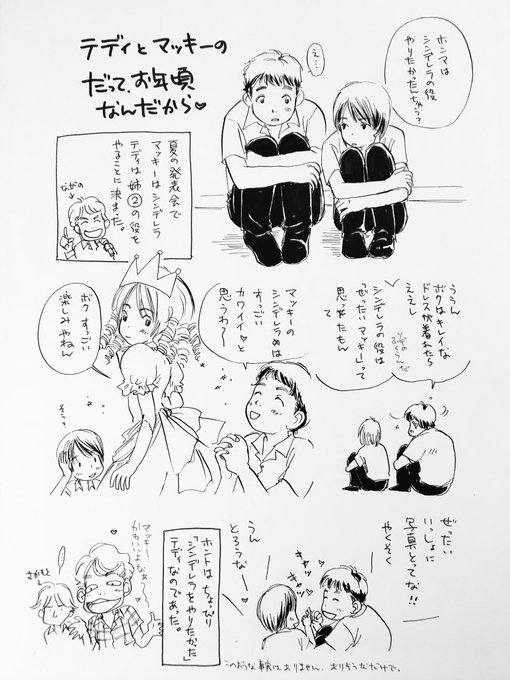 テディとマッキーの
だって、お年頃
なんだから♡
ホンマは
シンデレラの役
やりたかったんちゃう？
え…
夏の発表会で
マッキーはシンデレラ
テディは姉②の役を
やることに決まった。
ながの
ううん
ボクはキレイな
ドレスが着れたら
ええし
シンデレラの役は
「ぜったいマッキー」って
思ってたもん
て
マッキーの
シンデレラぬは
すっごい
カワイイ♡と
思うわ〜
ボクすっごい
楽しみやねん
そう？
ぜったい
いっしょに
写真とってな!!
やくそく
うん
とろうな〜
キャッ
キャッ
ホントはちょっぴり
「シンデレラをやりたかった」
テディなのであった。
マッキー
かわいいよなあ〜
さかもと
このような事実はありません。ありそうなだけで。